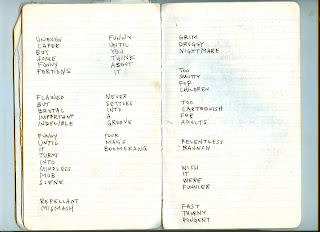 UNEVEN
CAPER
BUT
SOME
FUNNY
PORTIONS
FUNNY
UNTIL
YOU
THINK
ABOUT
IT
FLAWED
BUT
BRUTAL
IMPORTANT
INDELIBLE
NEVER
SETTLES
INTO
A
GROOVE
FUNNY
UNTIL
IT
TURNS
INTO
MINDLESS
MOB
SCENE
POOR
MAN'S
BOOMERANG
REPELLANT
MISMASH
GRIM
DRUGGY
NIGHTMARE
TOO
SMUTTY
FOR
CHILDREN
TOO
CARTOONISH
FOR
ADULTS
RELENTLESS
RAUNCH
WISH
IT
WERE
FUNNIER
FAST
THORNY
PUNGENT